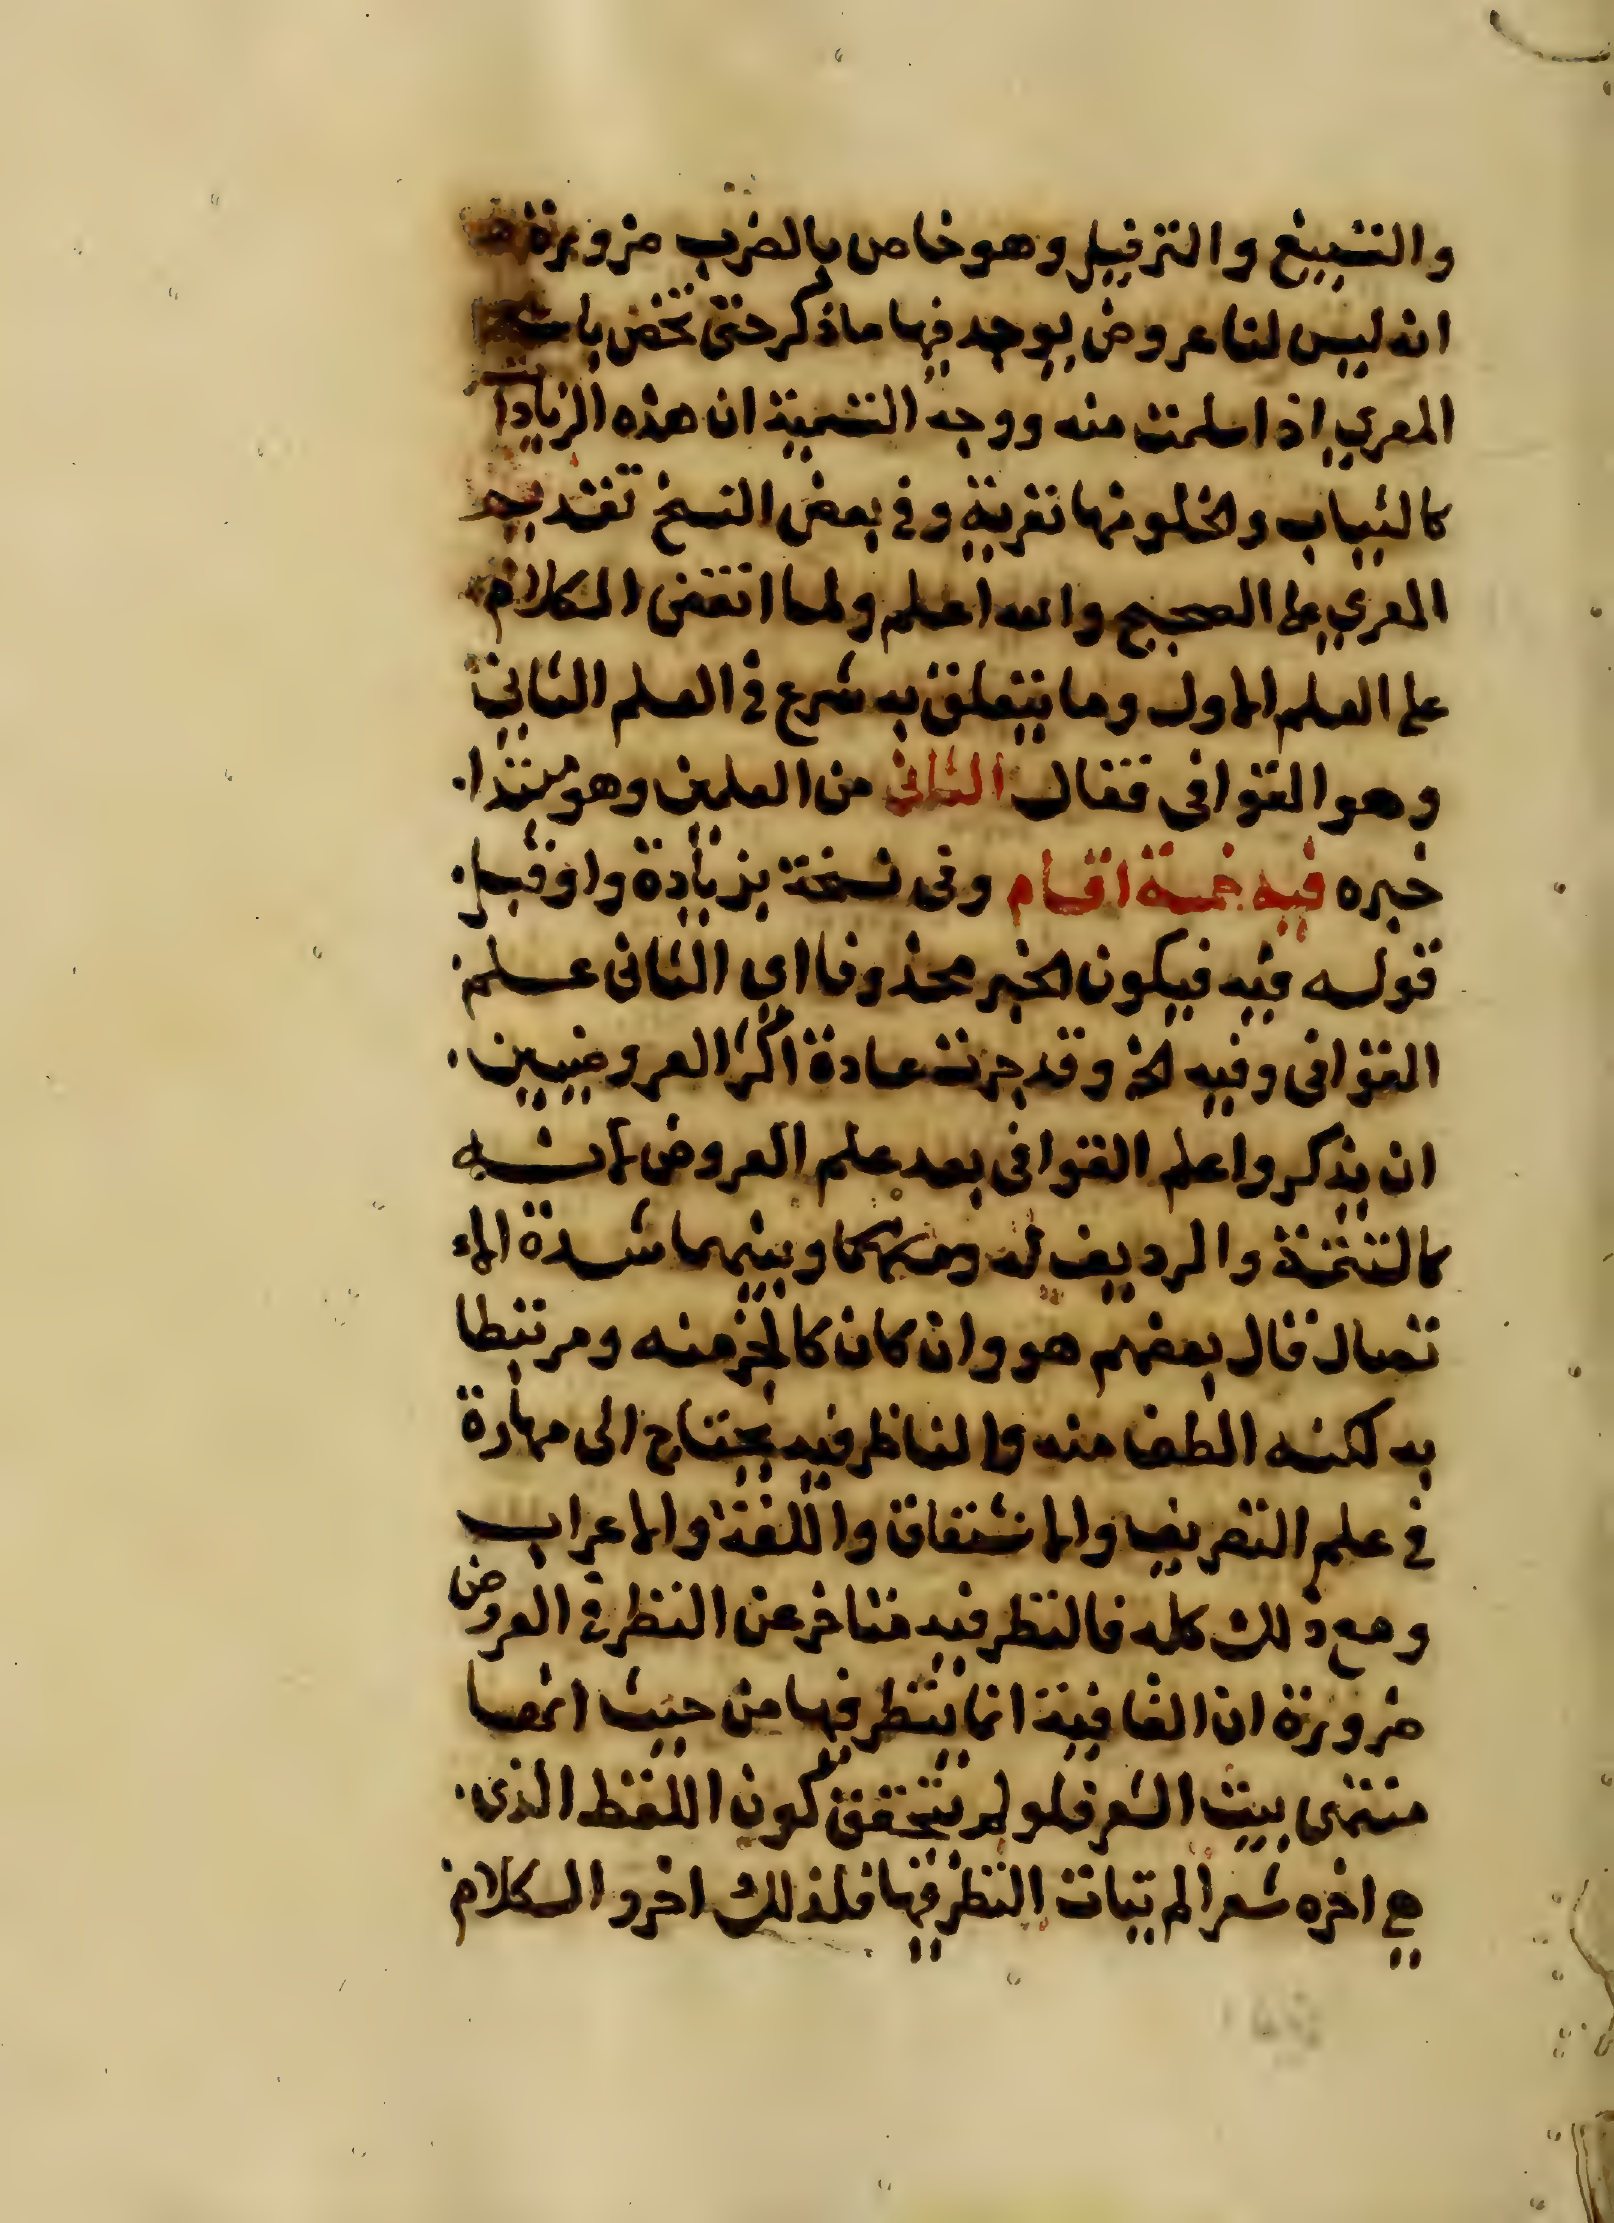 والتسبيغ والترفيل وهو خاص بالضرب ضرورة
انه ليس لنا عروض يوجد فيها ما ذكر حتى تخص باسم
المعري اذا سلمت منه ووجه التسمية ان هذه الزيادات
كالثياب والخلو منها تعرية وفي بعض النسخ تقديم
المعري على الصحيح والله اعلم ولما انقضى الكلام
على العلم الاول وما يتعلق به شرع في العلم الثاني
وهو القوافى فقال الثانى من العلمين وهو مبتدا
خبره فيه خمسة اقسام وفى نسخة بزيادة واو قبل
قوله فيه فيكون الخبر محذوفا اي الثانى علم
القوافى وفيه الخ وقد جرت عادة اكثر العروضيين
ان يذكروا علم القوافى بعد علم العروض لانه
كالتتمة والرديف له وبينهما شدة الا
تصال قال بعضهم هو وان كان كالجزء منه ومرتبطا
به لكنه الطف منه والناظر فيه يحتاج الى مهارة
في علم التصريف والاشتقاق واللغة والاعراب
ومع ذلك كله فالنظر فيه متاخر عن النظر في العروض
ضرورة ان القافية انما ينظر فيها من حيث انها
منتهى بيت الشعر فلو لم يتحقق كون اللفظ الذى
هي اخره شعرا لم يتات النظر فيها فلذلك اخرو الكلام